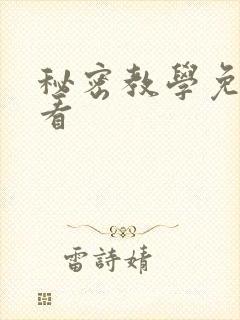 秘密教學免
看
雷詩婧